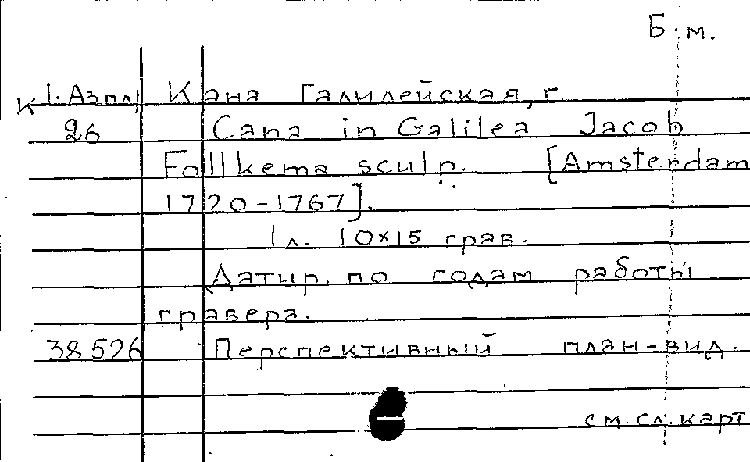 Б.м.
К 1.Азпл Кана Галилейская, г
26 Cana in Galilea Jacob
Follkema sculp. [Amsterdam
1720-1767].
1 л. 10×15 грав.
Датир. по годам работы
гравера.
38526 Перспективный план-вид.
см. сл. карт